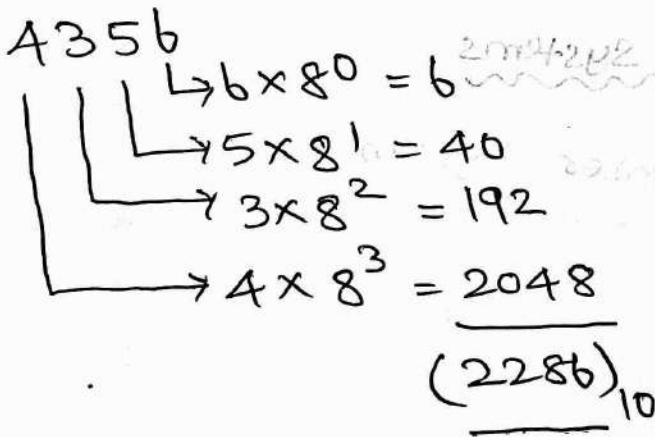 4356
6 × 8⁰ = 6
5 × 8¹ = 40
3 × 8² = 192
4 × 8³ = 2048
(2286)₁₀